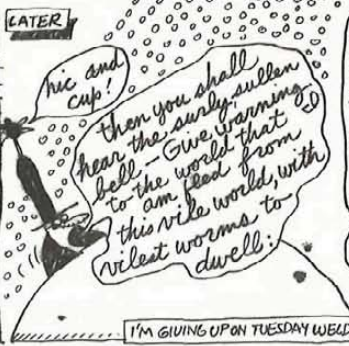 LATER
hic and
cup!
then you shall
hear the surly, sullen
bell – Give warning
to the world that I
am fled from
this vile world, with
vilest worms to
dwell:
I'M GIVING UP ON TUESDAY WELD